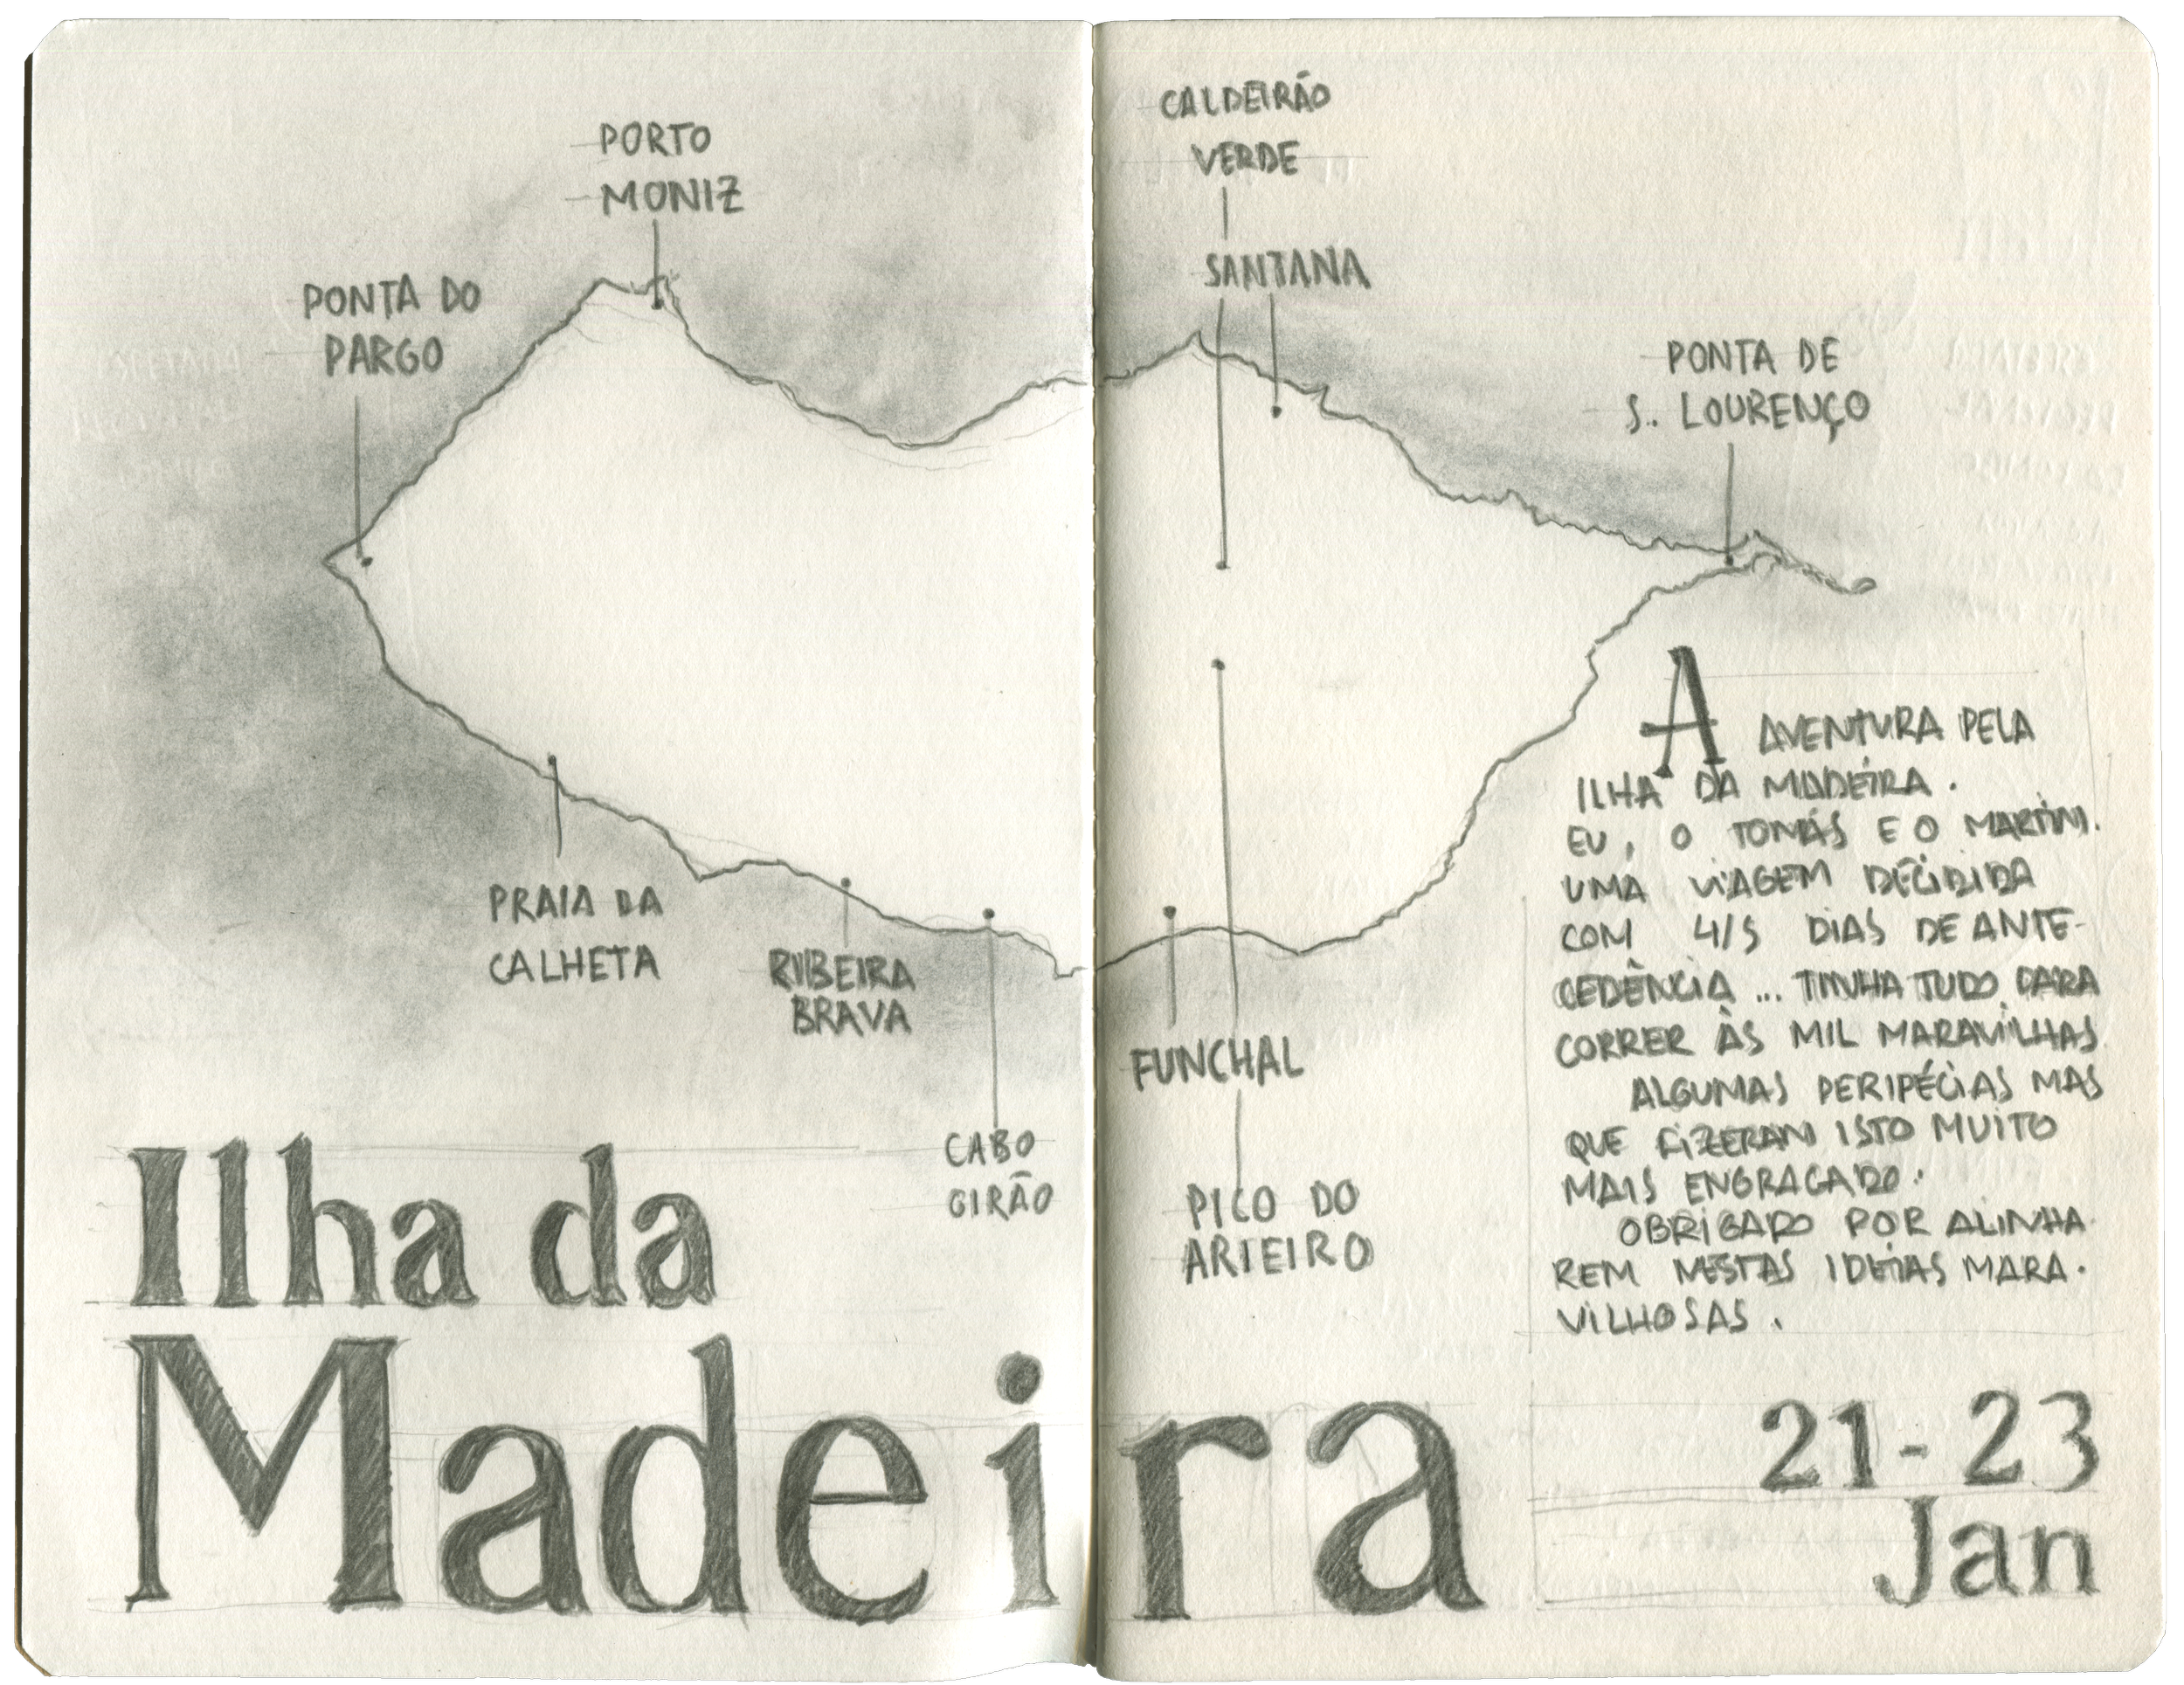 PORTO
MONIZ
PONTA DO
PARGO
CALDEIRÃO
VERDE
SANTANA
PONTA DE
S. LOURENÇO
PRAIA DA
CALHETA
RIBEIRA
BRAVA
CABO
GIRÃO
FUNCHAL
PICO DO
ARIEIRO
A AVENTURA PELA
ILHA DA MADEIRA.
EU, O TOMÁS E O MARTIM.
UMA VIAGEM DECIDIDA
COM 4/5 DIAS DE ANTE-
CEDÊNCIA ... TINHA TUDO PARA
CORRER ÀS MIL MARAVILHAS
ALGUMAS PERIPÉCIAS MAS
QUE FIZERAM ISTO MUITO
MAIS ENGRAÇADO.
OBRIGADO POR ALINHA
REM NESTAS IDEIAS MARA-
VILHOSAS.
Ilha da
Madeira
21-23
Jan